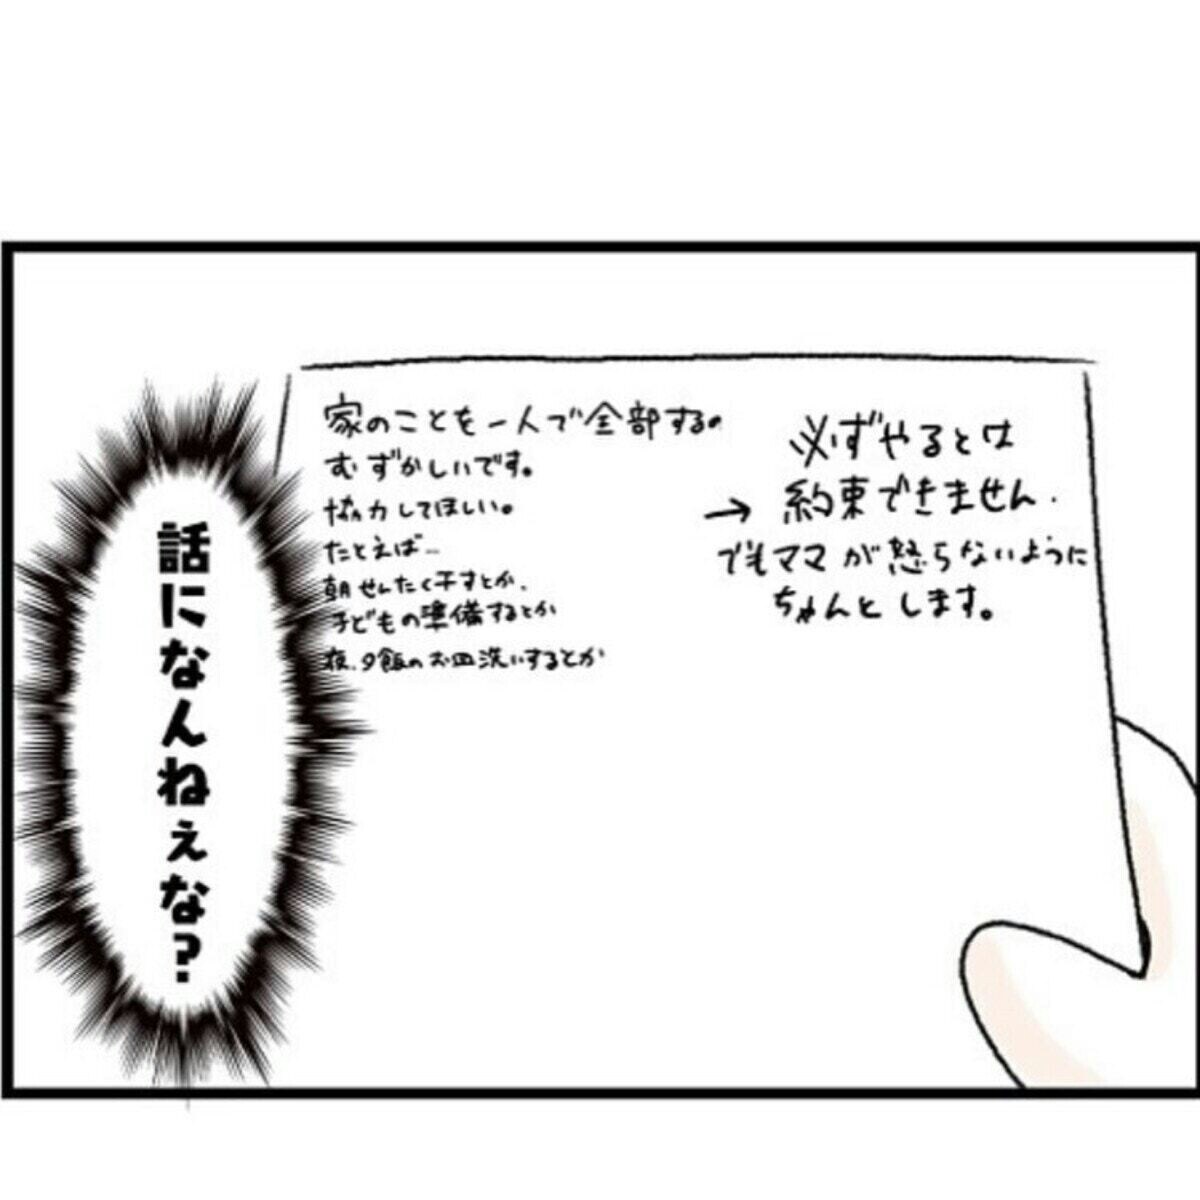 家のことを一人で全部するの
むずかしいです。
協力してほしい。
たとえば…
朝せんたく干すとか、
子どもの準備するとか
夜、夕飯のお皿洗いするとか
必ずやるとは
→ 約束できません.
でもママが怒らないように
ちゃんとします。
話になんねぇな？